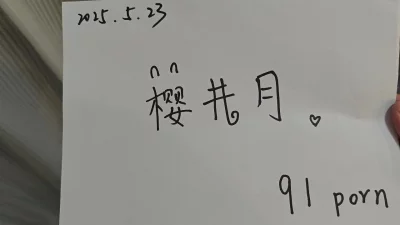 2025.5.23
樱井月。
91 porn